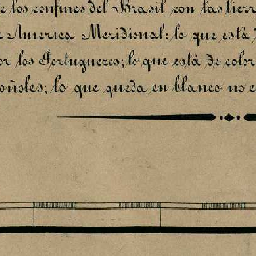 los confines del Brasil con las tierr
America Meridional: lo que está
los Portugueses; lo que está de color
lo que queda en blanco no e